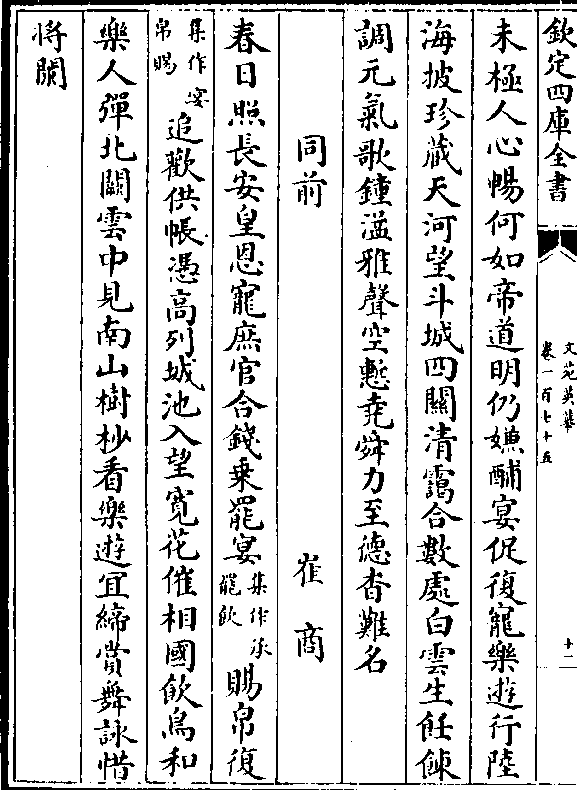 欽定四庫全書
文苑英華
卷一百七十五
十一
未極人心暢何如帝道明仍嫌酺宴促復寵樂遊行陸
海披珍藏天河望斗城四關清靄合數處白雲生飪餗
調元氣歌鐘溢雅聲空慙堯舜力至德杳難名
同前 崔商
春日照長安皇恩寵庶官合錢乗罷宴集作承罷飲賜帛復
集作宴帛賜追歡供帳憑高列城池入望寛花催相國飲鳥和
樂人彈北闕雲中見南山樹杪看樂遊宜締賞舞詠惜
将闌